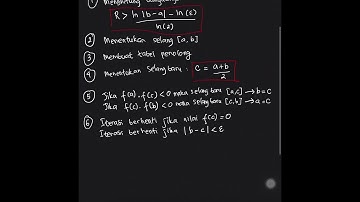 ① Menghitung
R > ln |b-a| - ln(ε) / ln(2)
② Menentukan selang [a,b]
③ Membuat tabel penolong
④ Menentukan Selang baru : C = a+b / 2
⑤ Jika f(a).f(c) < 0 maka selang baru [a,c] → b = c
Jika f(c).f(b) < 0 maka selang baru [c,b] → a = c
⑥ Iterasi berhenti jika nilai f(c) = 0
Iterasi berhenti jika |b-c| < ε